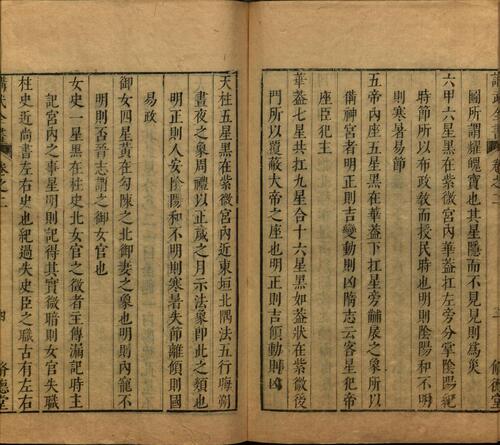 圖所謂耀魄寶也其星隱而不見見則為災
六甲六星黑在紫微宮內華蓋杠左旁分掌陰陽紀
時節所以布政敎而授民時也明則陰陽和不明
則寒暑易節
五帝內座五星黑在華蓋下杠星旁黼展之象所以
備神宮者明正則吉變動則凶隋志云客星犯帝
座臣犯主
華蓋七星共杠九星合十六星黑如蓋狀在紫微後
門所以覆蔽大帝之座也明正則吉傾動則凶
脩德堂
天柱五星黑在紫微宮內近東垣北隅法五行晦朔
晝夜之象周禮以正歲之月示法象即此之類也
明正則人安陰陽和不明則寒暑失節離傾則國
易政
御女四星黃在勾陳之北御妻之象也明則內寵不
明則否晉志謂之御女官也
女史一星黑在柱史北女官之微者主傳漏記時主
記宮內之事星明則記得其實微暗則女官失職
柱史近尚書左右史也紀過失史臣之職古有左右
卷之二
四
脩德堂